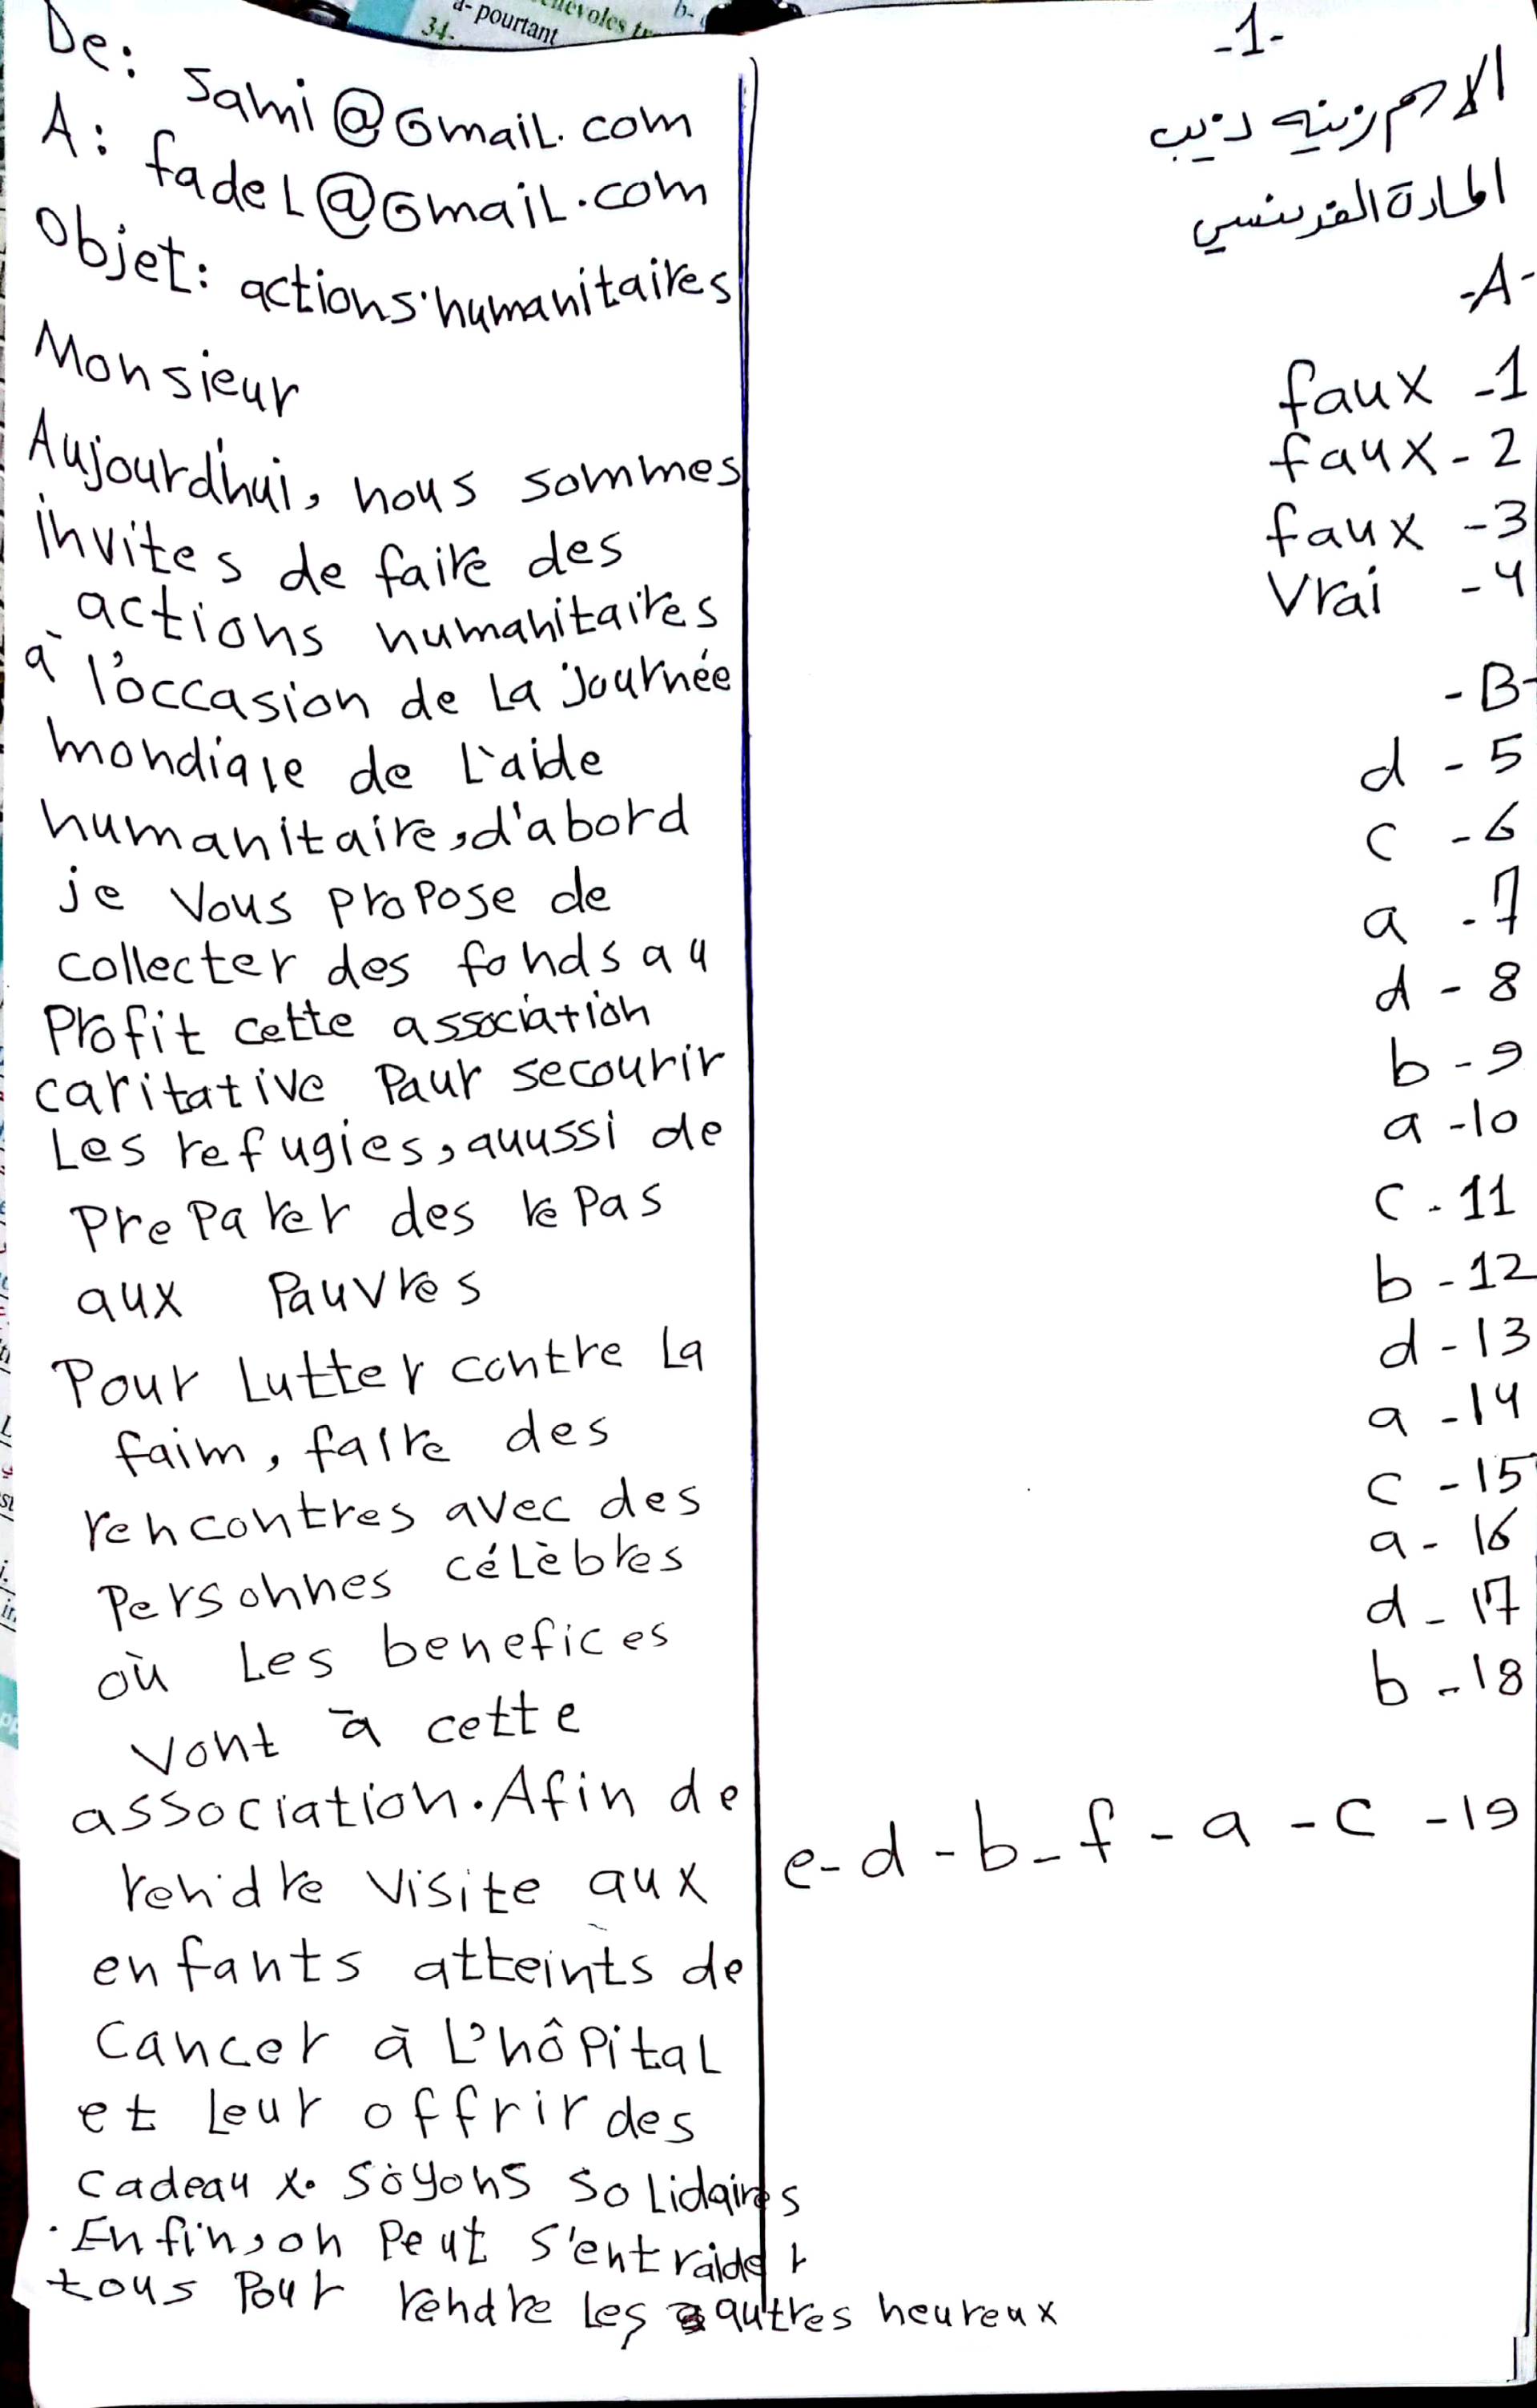 34.
a- pourtant
b-
De: Sami@Gmail.com
A: fadel@Gmail.com
Objet: actions humanitaires
Monsieur
Aujourd'hui, nous sommes
invites de faire des
actions humanitaires
à l'occasion de La journée
mondiale de L'aide
humanitaire, d'abord
je Vous propose de
collecter des fonds au
Profit cette association
caritative Paur secourir
Les refugies, auussi de
PrePaRer des rePas
aux Pauvres
Pour Lutter contre La
faim, faire des
rencontres avec des
Personnes céLèbres
où Les benefices
vont à cette
association. Afin de
rendre visite aux
enfants atteints de
Cancer à L'hôPital
et Leur offrir des
cadeaux. Soyons soLidaires
. Enfin, on Peut s'entraider
tous Pour rendre Les autres heureux
-1-
الاسم زينه ديب
المادة الفرنسي
-A-
faux -1
faux - 2
faux -3
Vrai -4
-B-
d - 5
c - 6
a - 7
d - 8
b - 9
a - 10
c - 11
b - 12
d - 13
a - 14
c - 15
a - 16
d - 17
b - 18
e - d - b - f - a - c - 19